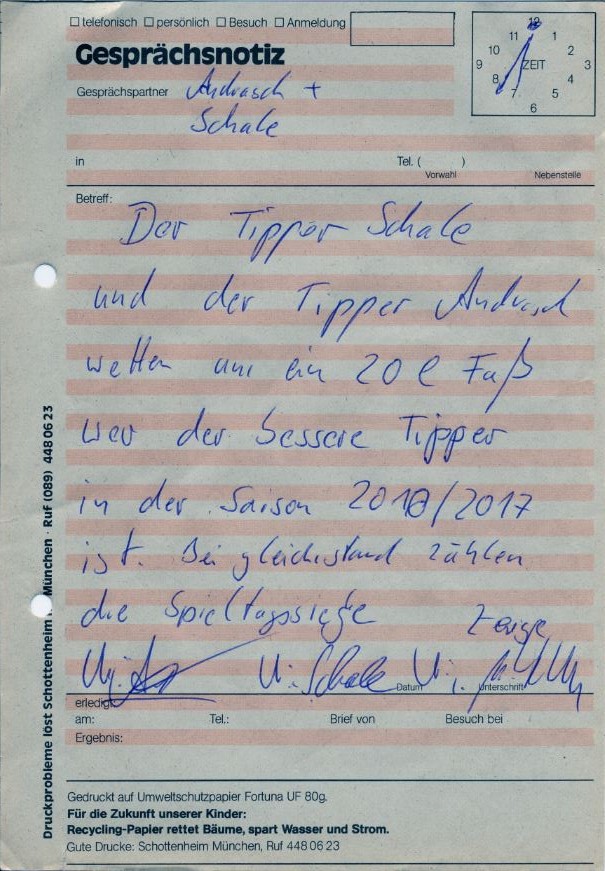 ☐ telefonisch ☐ persönlich ☐ Besuch ☐ Anmeldung
Gesprächsnotiz
Gesprächspartner Andrasch +
Schale
12 1 2 3 4 5 6 7 8 9 10 11
ZEIT
in Tel. ( )
Vorwahl Nebenstelle
Betreff:
Der Tipper Schale
und der Tipper Andrasch
wetten um ein 20 l Faß
wer der bessere Tipper
in der Saison 2016/2017
ist. Bei gleichstand zählen
die Spieltagssiege
Zeuge
Schale
Datum Unterschrift
erledigt
am: Tel.: Brief von Besuch bei
Ergebnis:
Gedruckt auf Umweltschutzpapier Fortuna UF 80g.
Für die Zukunft unserer Kinder:
Recycling-Papier rettet Bäume, spart Wasser und Strom.
Gute Drucke: Schottenheim München, Ruf 448 06 23
Druckprobleme löst Schottenheim München · Ruf (089) 448 06 23